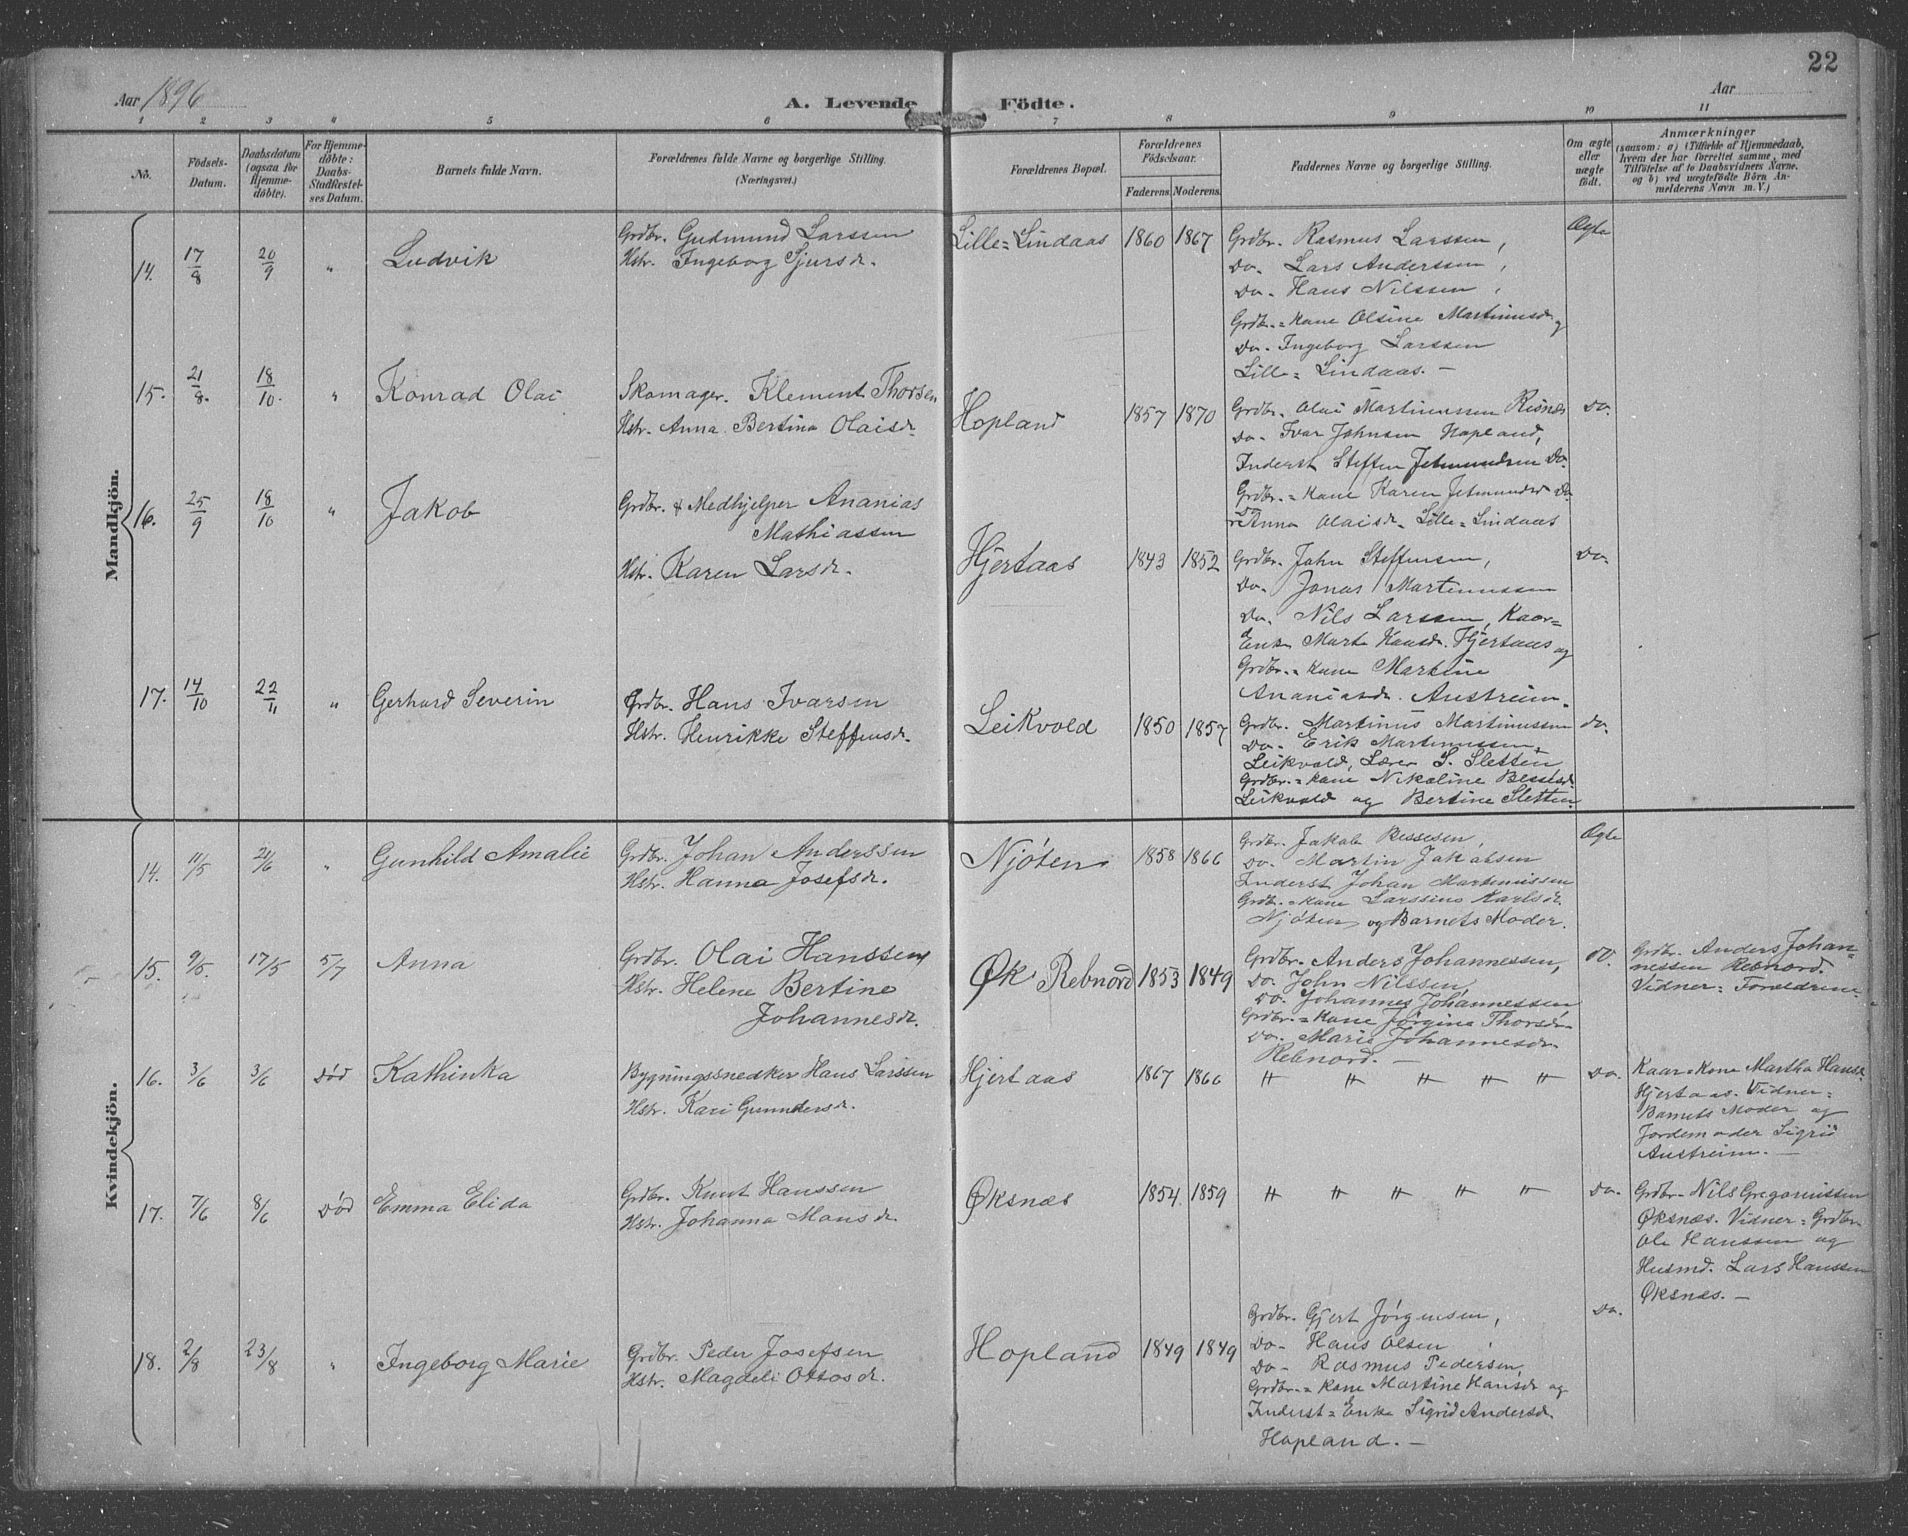 22
Aar 1896
A. Levende Födte.
Aar
1 2 3 4 5 6 7 8 9 10 11
No.
Födsels-Datum.
Daabsdatum (ogsaa for Hjemme-döbte).
For Hjemme-döbte: Daabs-Stadfæstel-ses Datum.
Barnets fulde Navn.
Forældrenes fulde Navne og borgerlige Stilling.
(Næringsvei.)
Forældrenes Bopæl.
Forældrenes Födselsaar.
Faderens. Moderens.
Faddernes Navne og borgerlige Stilling.
Om ægte eller uægte födt.
Anmærkninger
(saasom: a) i Tilfælde af Hjemmedaab,
hvem der har forrettet samme, med
Tilföielse af to Daabsvidners Navne,
og b) ved uægtefödte Börn An-
melderens Navn m. V.)
Mandkjön.
14. 17/8 20/9 " Ludvik
Grdbr. Gudmund Larssen
Hstr. Ingeborg Sjursdr.
Lille-Lindaas 1860 1867
Grdbr. Rasmus Larssen,
Do. Lars Anderssen,
Do. Hans Nilssen,
Grdbr.-kone Olsine Martinusdr og
Do. Ingeborg Larssen
Lille-Lindaas. —
Ægte
15. 21/8. 18/10. " Konrad Olai
Skomager. Klement Thorsen
Hstr. Anna Bertina Olaisdr.
Hopland 1857 1870
Grdbr. Olai Martinussen Risnæs
Do. Ivar Johnsen Hopland,
Inderst Steffen Jetmundsen Do.
Grdbr.-kone Karen Jetmundsd Do.
Anna Olaisdr. Lille-Lindaas
Do.
16. 25/9 18/10 " Jakob
Grdbr. & Medhjelper Ananias
Mathiassen
Hstr. Karen Larsdr.
Hjertaas 1843 1852
Grdbr. John Steffensen,
Do. Jonas Martinussen
Do. Nils Larssen, Kaar-
Enke Marte Hansdr. Hjertaas og
Grdbr.-kone Martine
Ananiasdr. Austreim.
Do.
17. 14/10 22/11 " Gerhard Severin
Grdbr. Hans Ivarsen
Hstr. Henrikke Steffensdr.
Leikvold 1850 1857
Grdbr. Martinus Martinussen
Do. Erik Martinussen
Leikvold, Lærer S. Sletten
Grdbr.-kone Nikoline
Leikvold og Bertine Sletten.
Do.
Kvindekjön.
14. 11/5 21/6 " Gunhild Amalie
Grdbr. Johan Anderssen
Hstr. Hanna Josefsdr.
Njöten 1858 1866
Grdbr. Jakob
Do. Martin Jakobsen
Inderst Johan Martinussen
Grdbr.-kone Larssine Karlsdr.
Njöten og Barnets Moder.
Ægte
15. 9/5. 17/5 5/7 Anna
Grdbr. Olai Hanssen
Hstr. Helene Bertine
Johannesdr.
Øk Rebnord 1853 1849
Grdbr. Anders Johannessen,
Do. John Nilssen,
Do. Johannes Johannessen
Grdbr.-kone Jørgina Thorsdr
Do. Marie Johannesdr.
Rebnord. —
Do.
Grdbr. Anders Johan-
nessen Rebnord.
Vidner: Forældrene.
16. 3/6 3/6 Død Kathinka
Bygningssnedker Hans Larssen
Hstr. Kari Gunnders dr.
Hjertaas 1867 1866
" " " " "
Do.
Kaar-kone Martha Hansdr
Hjertaas. Vidner:
Barnets Moder og
Jordemoder Sigrid
Austreim. —
17. 7/6 8/6 Død Emma Elida
Grdbr. Knut Hanssen
Hstr. Johanna Monsdr.
Øksnæs 1854 1859
" " " " "
Do.
Grdbr. Nils Gregoriussen
Øksnæs. Vidner: Grdbr
Ole Hanssen og
Husmd. Lars Hanssen
Øksnæs. —
18. 2/8 23/8 " Ingeborg Marie
Grdbr. Peder Josefsen
Hstr. Magdeli Ottosdr.
Hopland 1849 1849
Grdbr. Gjert Jørgensen,
Do. Hans Olsen,
Do. Rasmus Pedersen,
Grdbr.-kone Martine Hansdr og
Inderst-Enke Sigrid Andersdr
Hopland. —
Do.